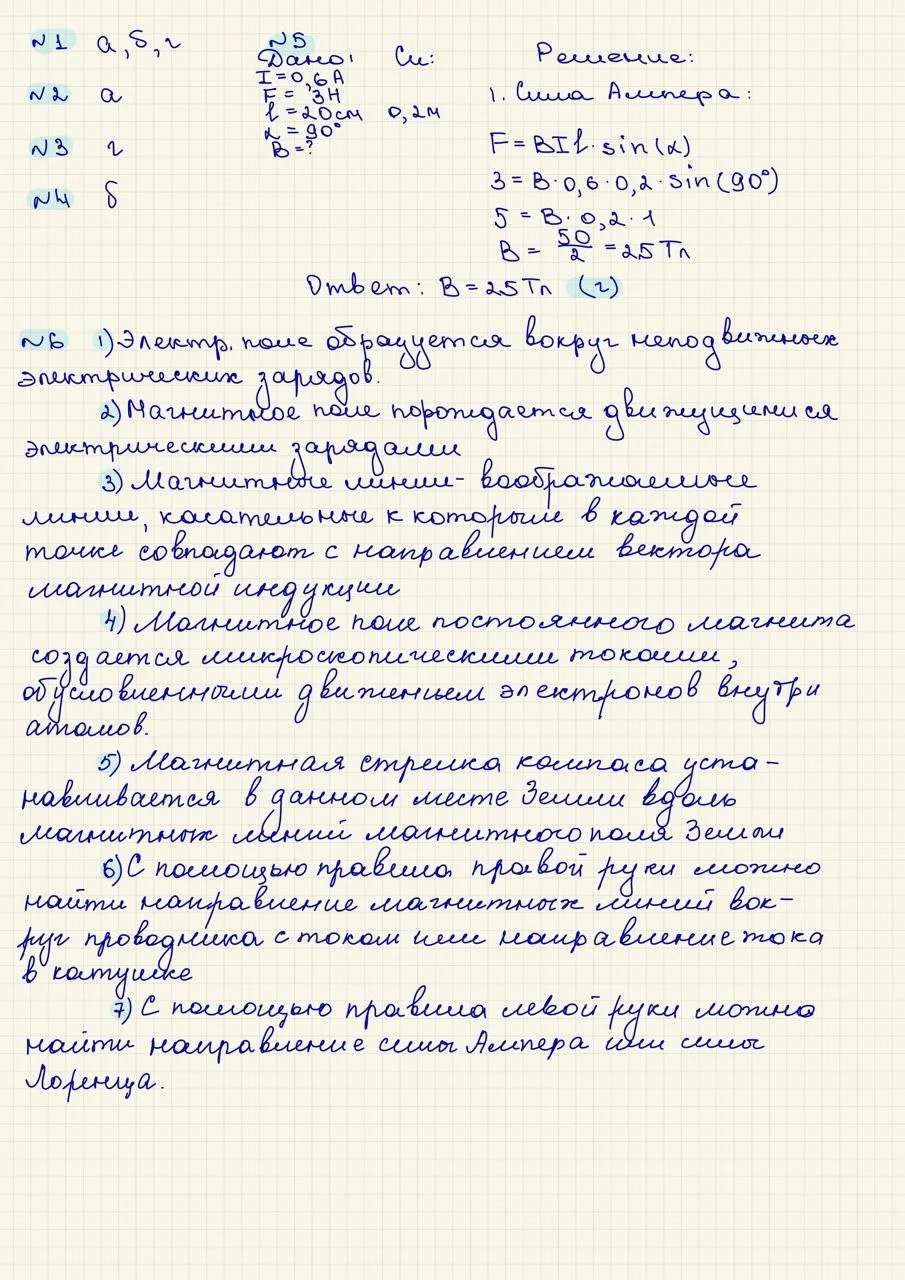 №1 а, б, г
№2 а
№3 г
№4 б
№5
Дано:
Си:
I=0,6А
F= 3Н
l=20см 0,2м
α=90°
B=?
Решение:
1. Сила Ампера:
F=BIl·sin(α)
3=B·0,6·0,2·sin(90°)
5=B·0,2·1
B= 50/2 =25Тл
Ответ: B=25Тл (г)
№6 1) Электр. поле образуется вокруг неподвижных
электрических зарядов.
2) Магнитное поле порождается движущимися
электрическими зарядами
3) Магнитные линии- воображаемые
линии, касательные к которым в каждой
точке совпадают с направлением вектора
магнитной индукции
4) Магнитное поле постоянного магнита
создается микроскопическими токами,
обусловленными движеньем электронов внутри
атомов.
5) Магнитная стрелка компаса уста-
навливается в данном месте Земли вдоль
магнитных линий магнитного поля Земли
6) С помощью правила правой руки можно
найти направление магнитных линий вок-
руг проводника с током или направление тока
в катушке
7) С помощью правила левой руки можно
найти направление силы Ампера или силы
Лоренца.